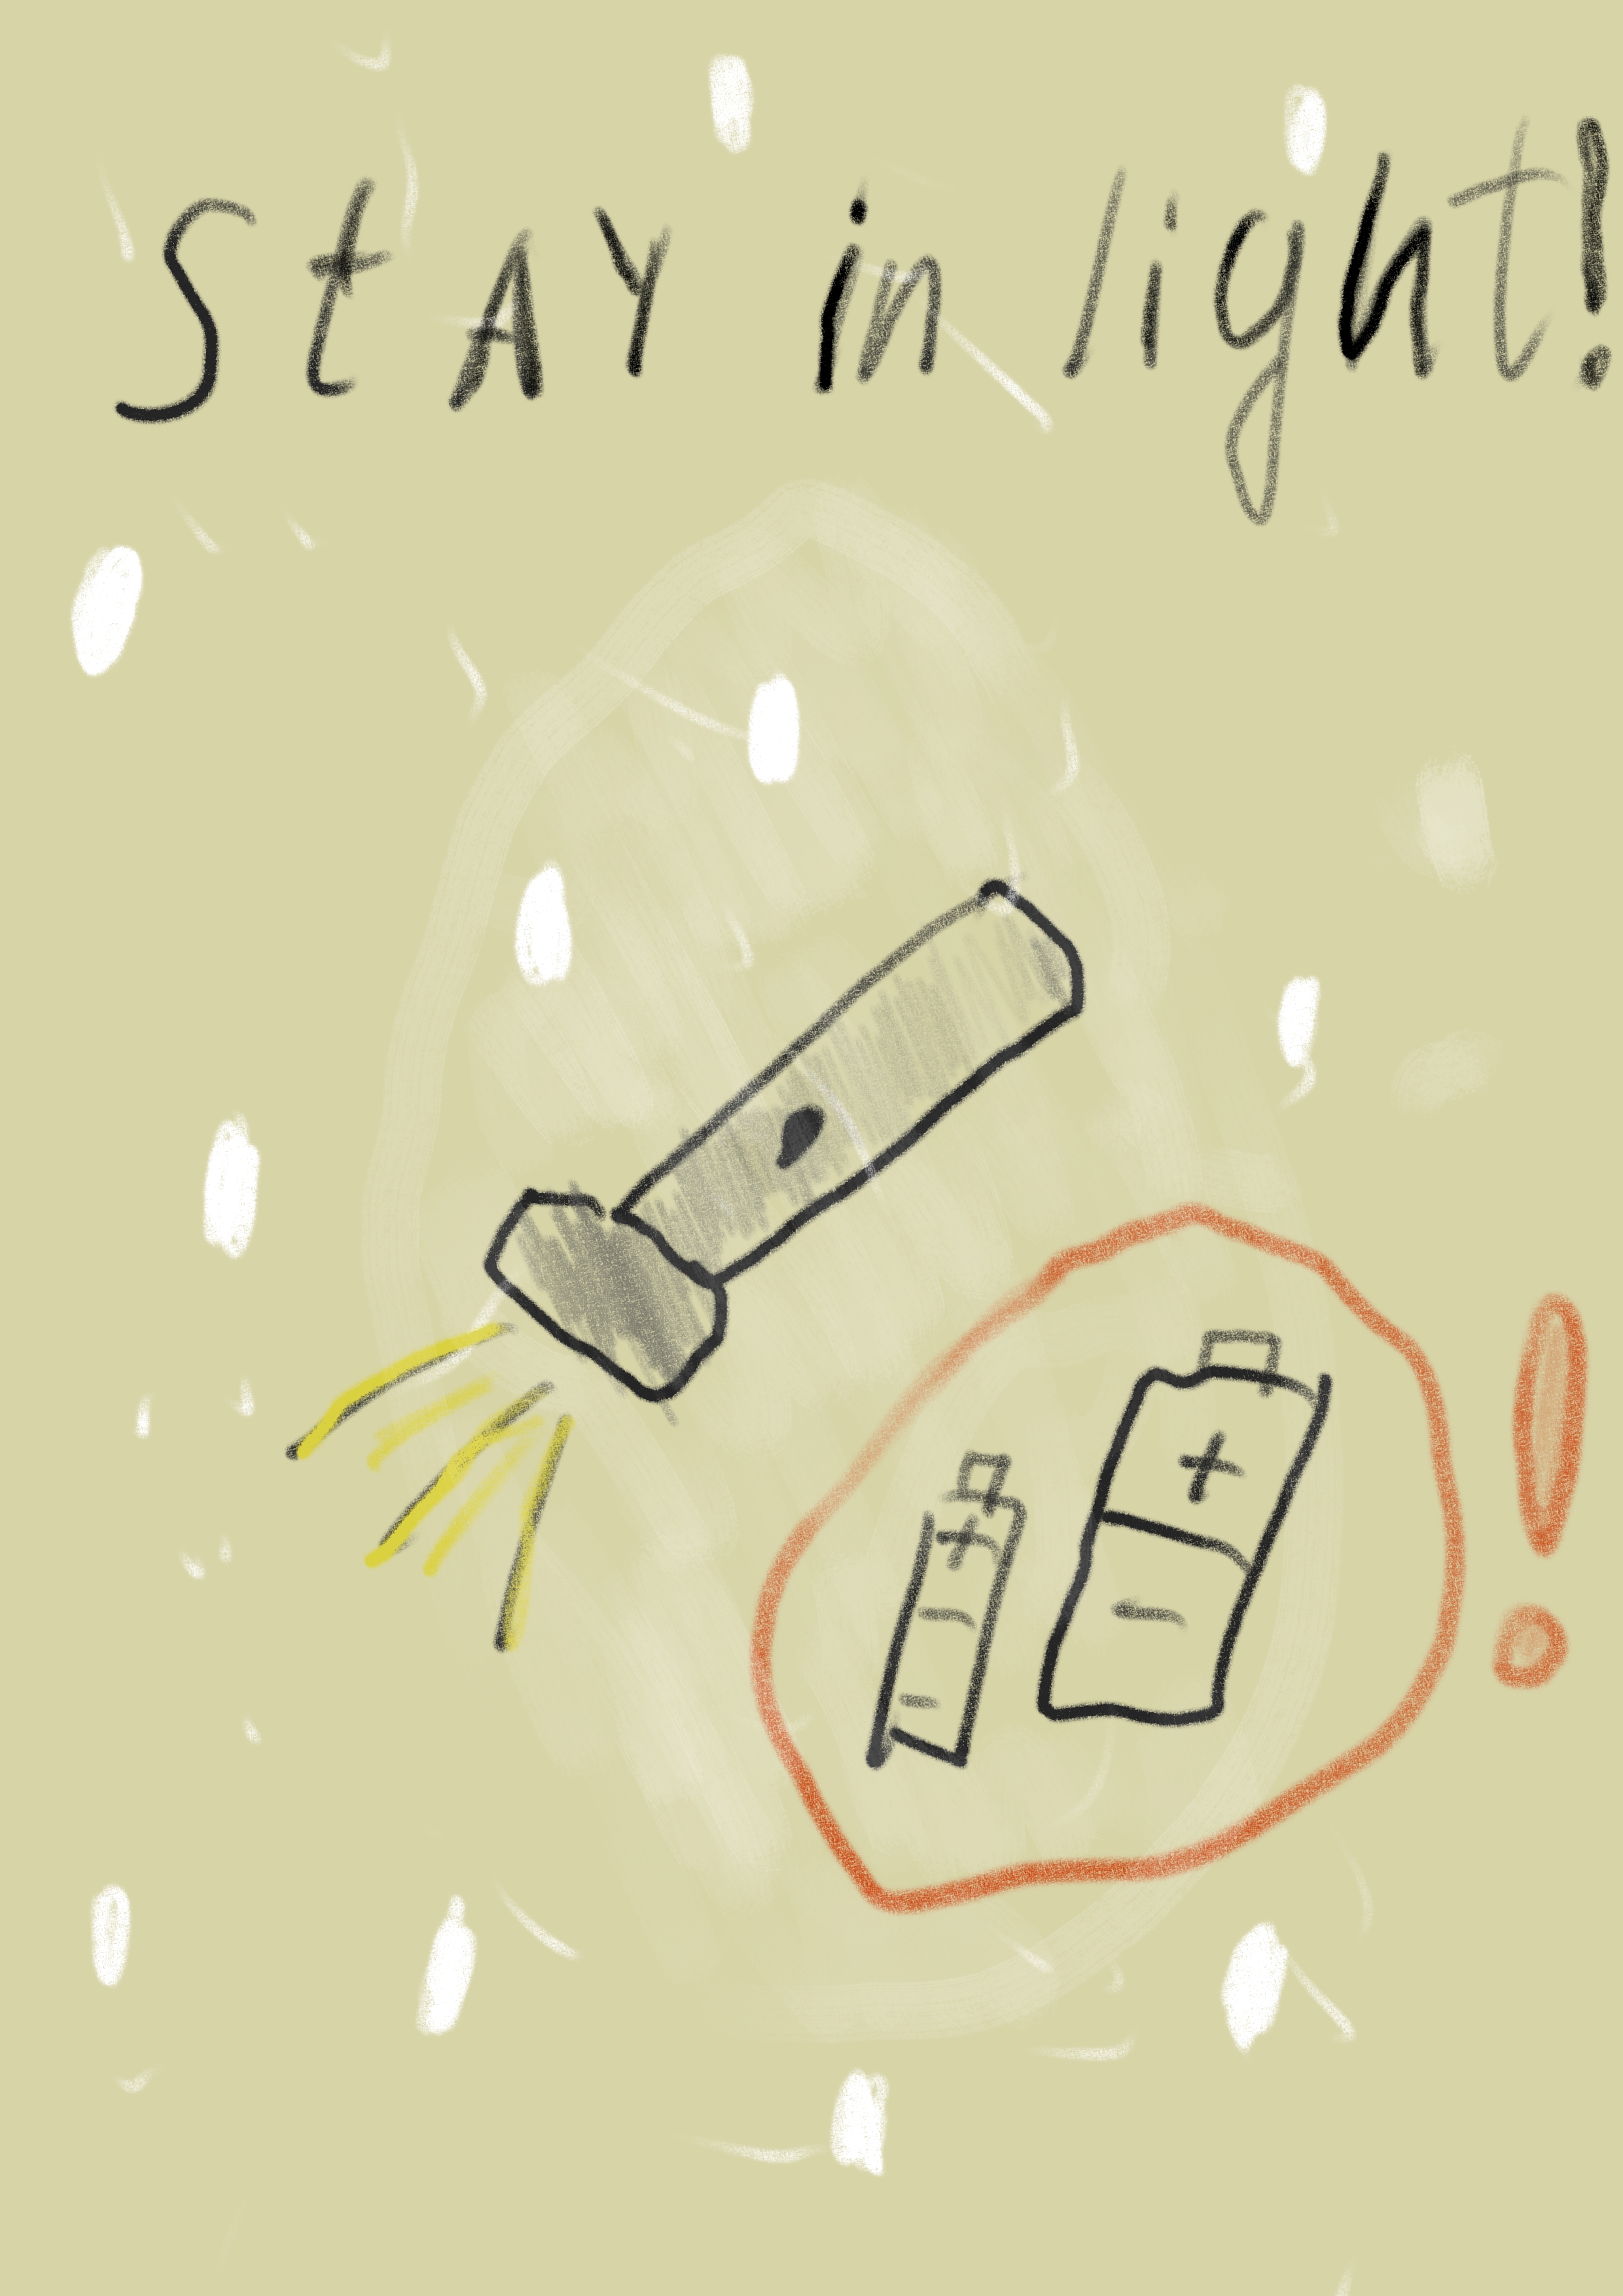 StAY in light!
+
-
+
-
-
!